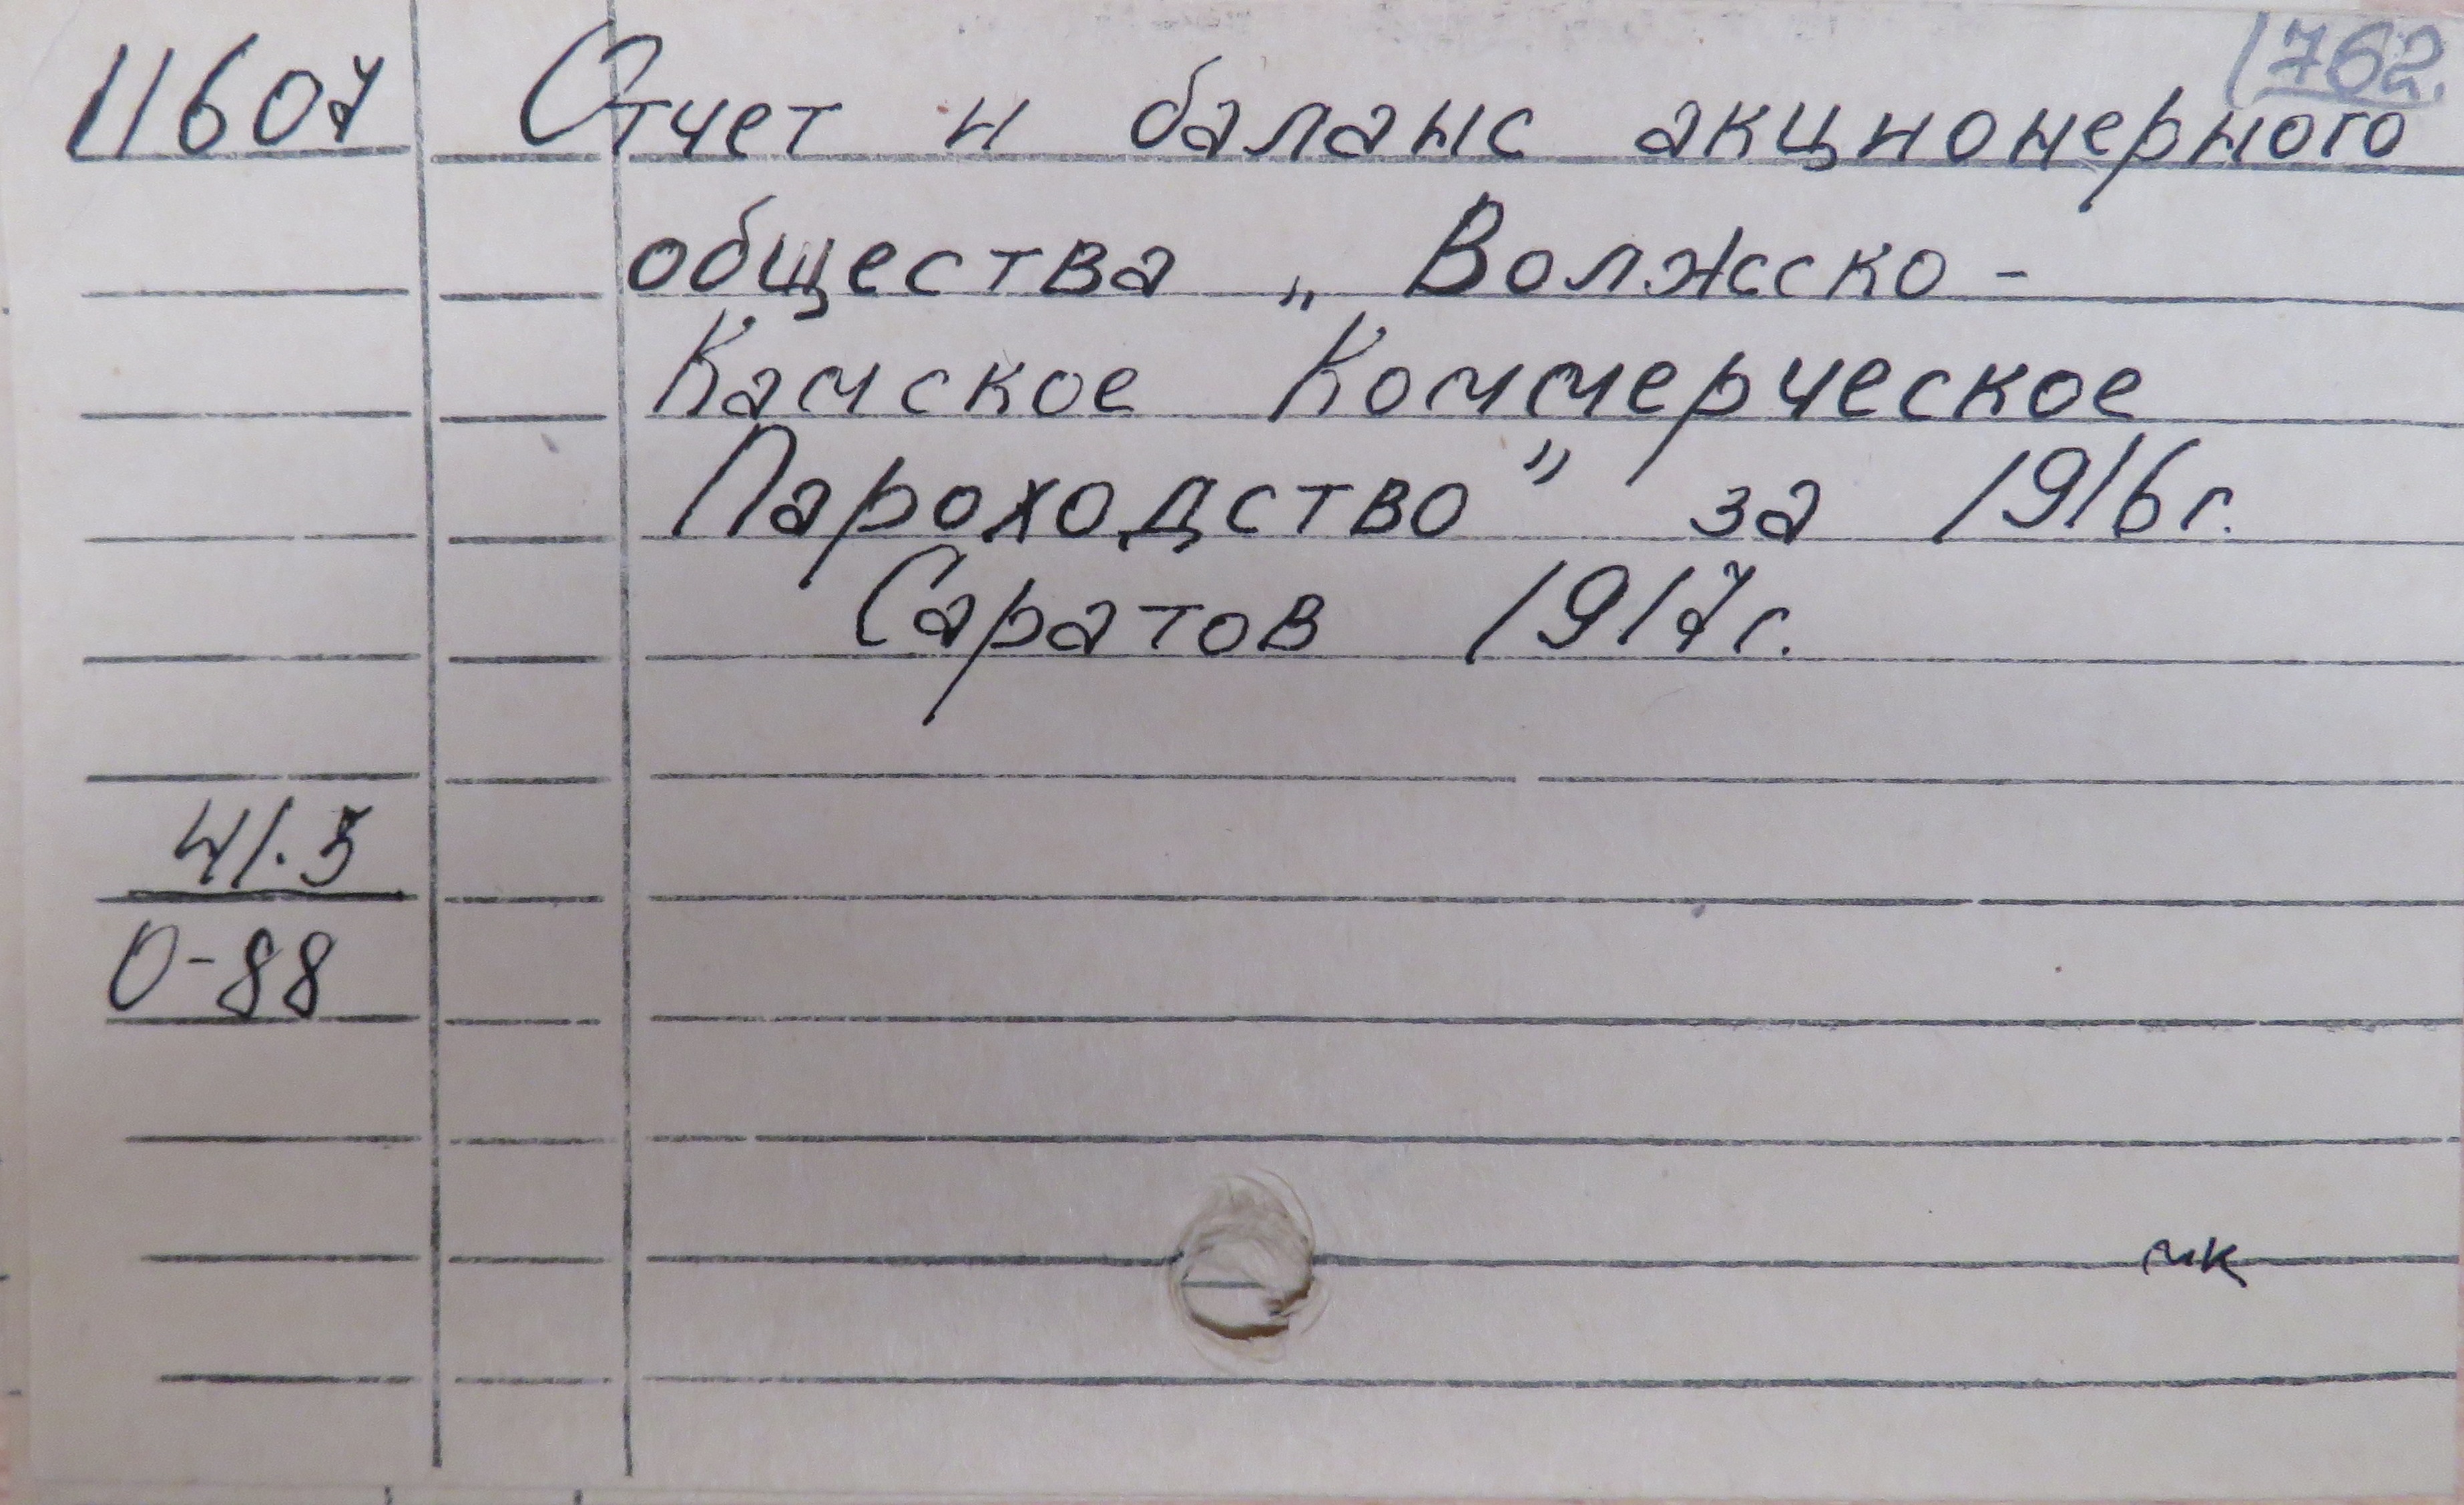 1762.
11607 Отчет и баланс акционерного
общества „Волжско-
Камское Коммерческое
Пароходство" за 1916 г.
Саратов 1917 г.
41.5
О-88
мк